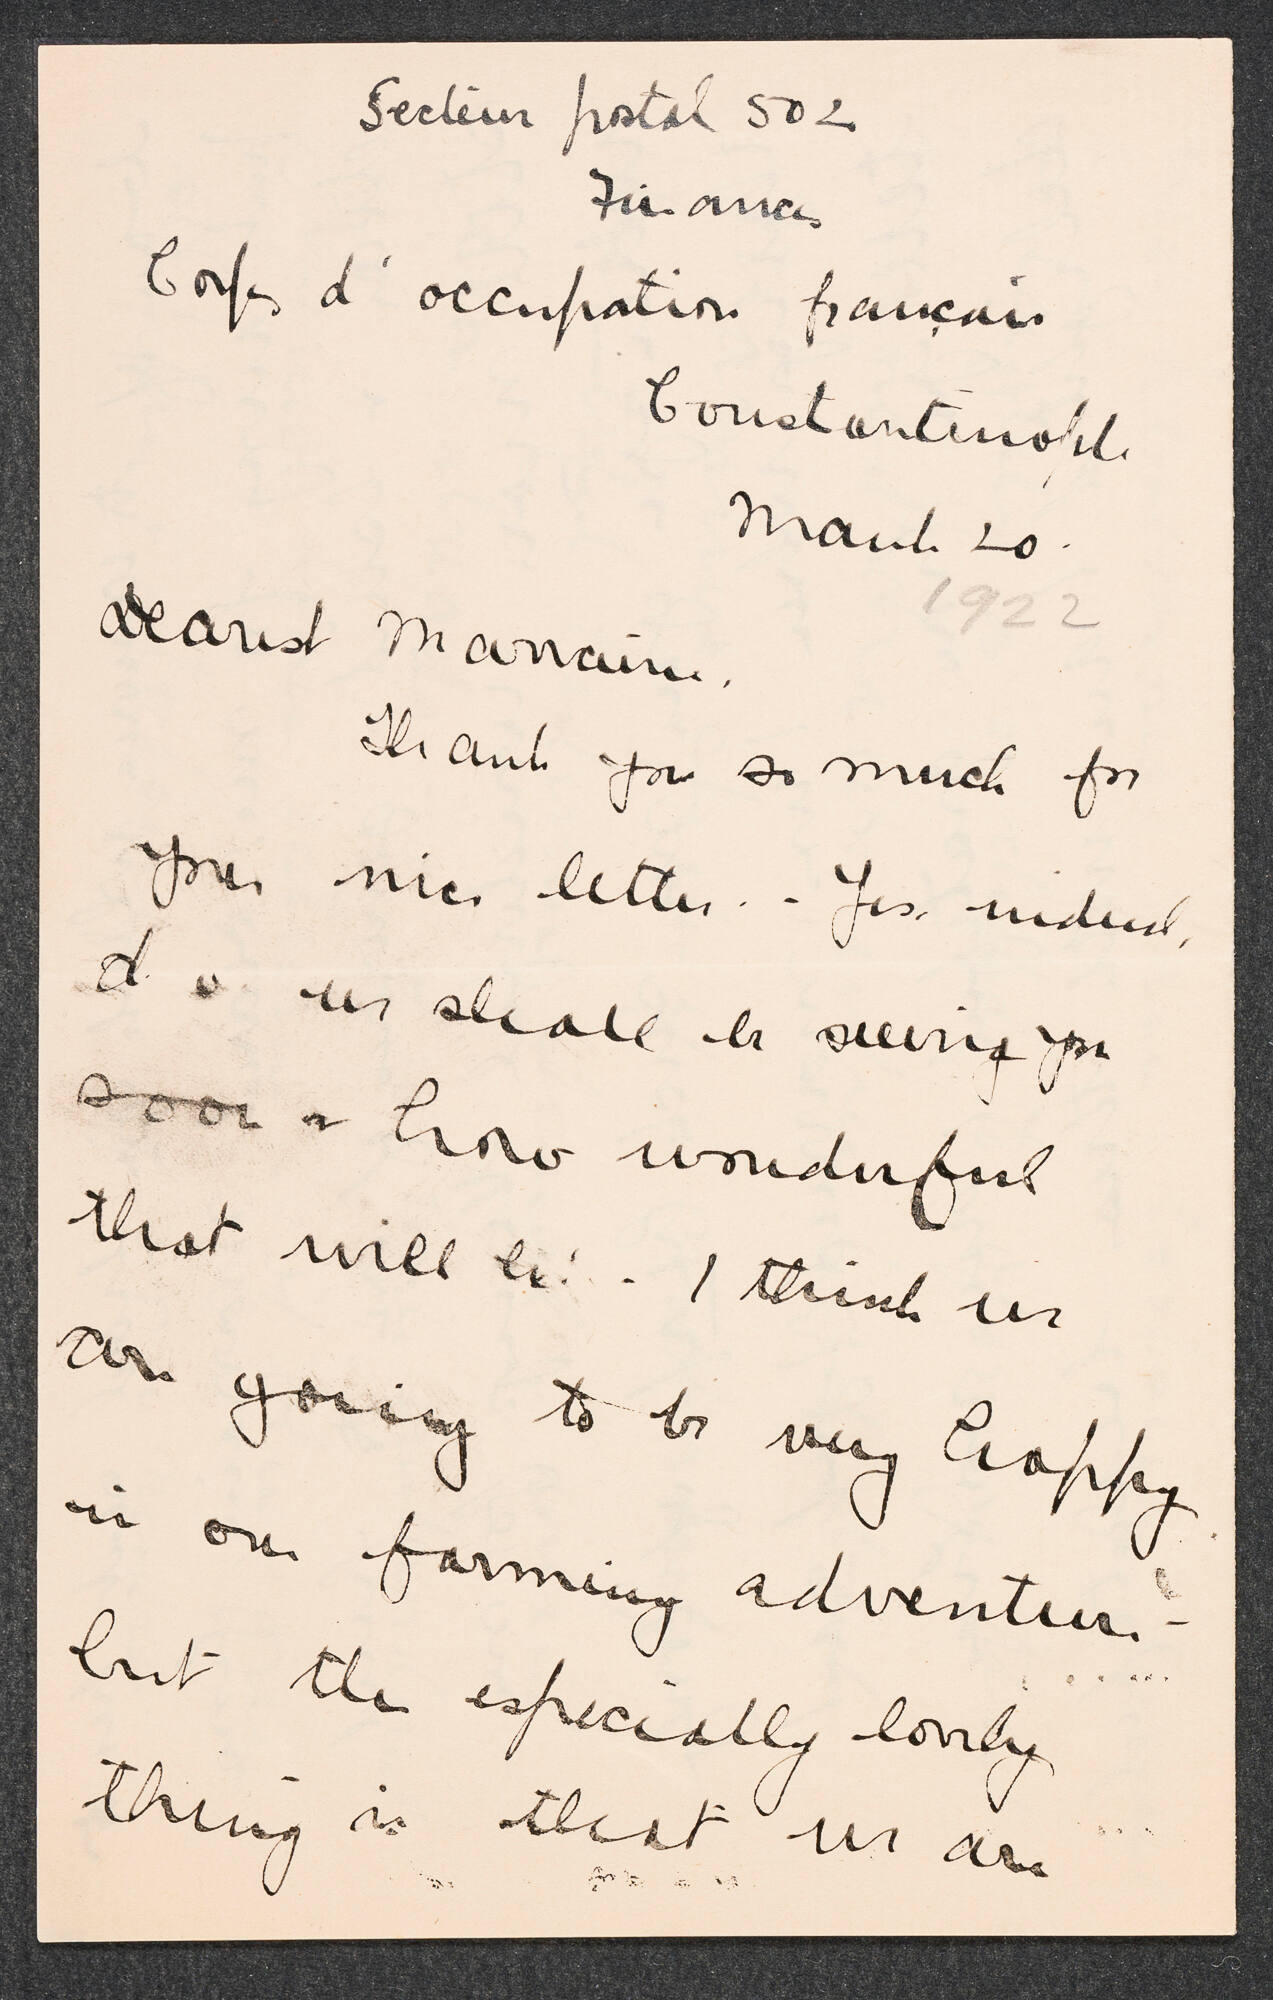 Secteur postal 502
Finances
Corps d'occupation français
Constantinople
March 20.
1922
Dearest Marraine,
Thank you so much for
your nice letter. - Yes, indeed,
we shall be seeing you
soon - how wonderful
that will be! - I think we
are going to be very happy
in our farming adventure -
but the especially lovely
thing is that we are